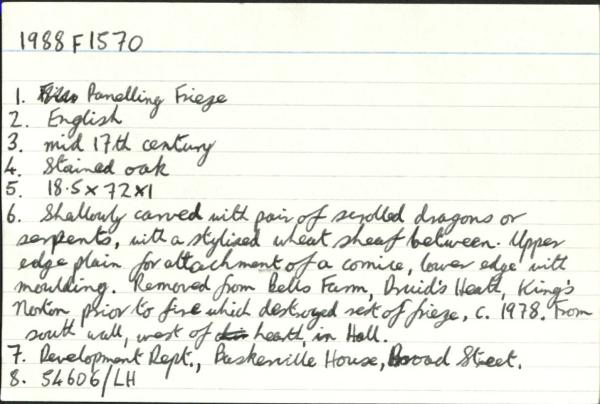 1988 F 1570
1. Panelling Frieze
2. English
3. mid 17th century
4. Stained oak
5. 18.5 x 72 x 1
6. Shallowly carved with pair of scrolled dragons or
serpents, with a stylised wheat sheaf between. Upper
edge plain for attachment of a cornice, lower edge with
moulding. Removed from Bells Farm, Druid's Heath, King's
Norton, prior to fire which destroyed rest of frieze, c. 1978. From
south wall, west of hearth, in Hall.
7. Development Dept., Baskerville House, Broad Street.
8. 54606/LH